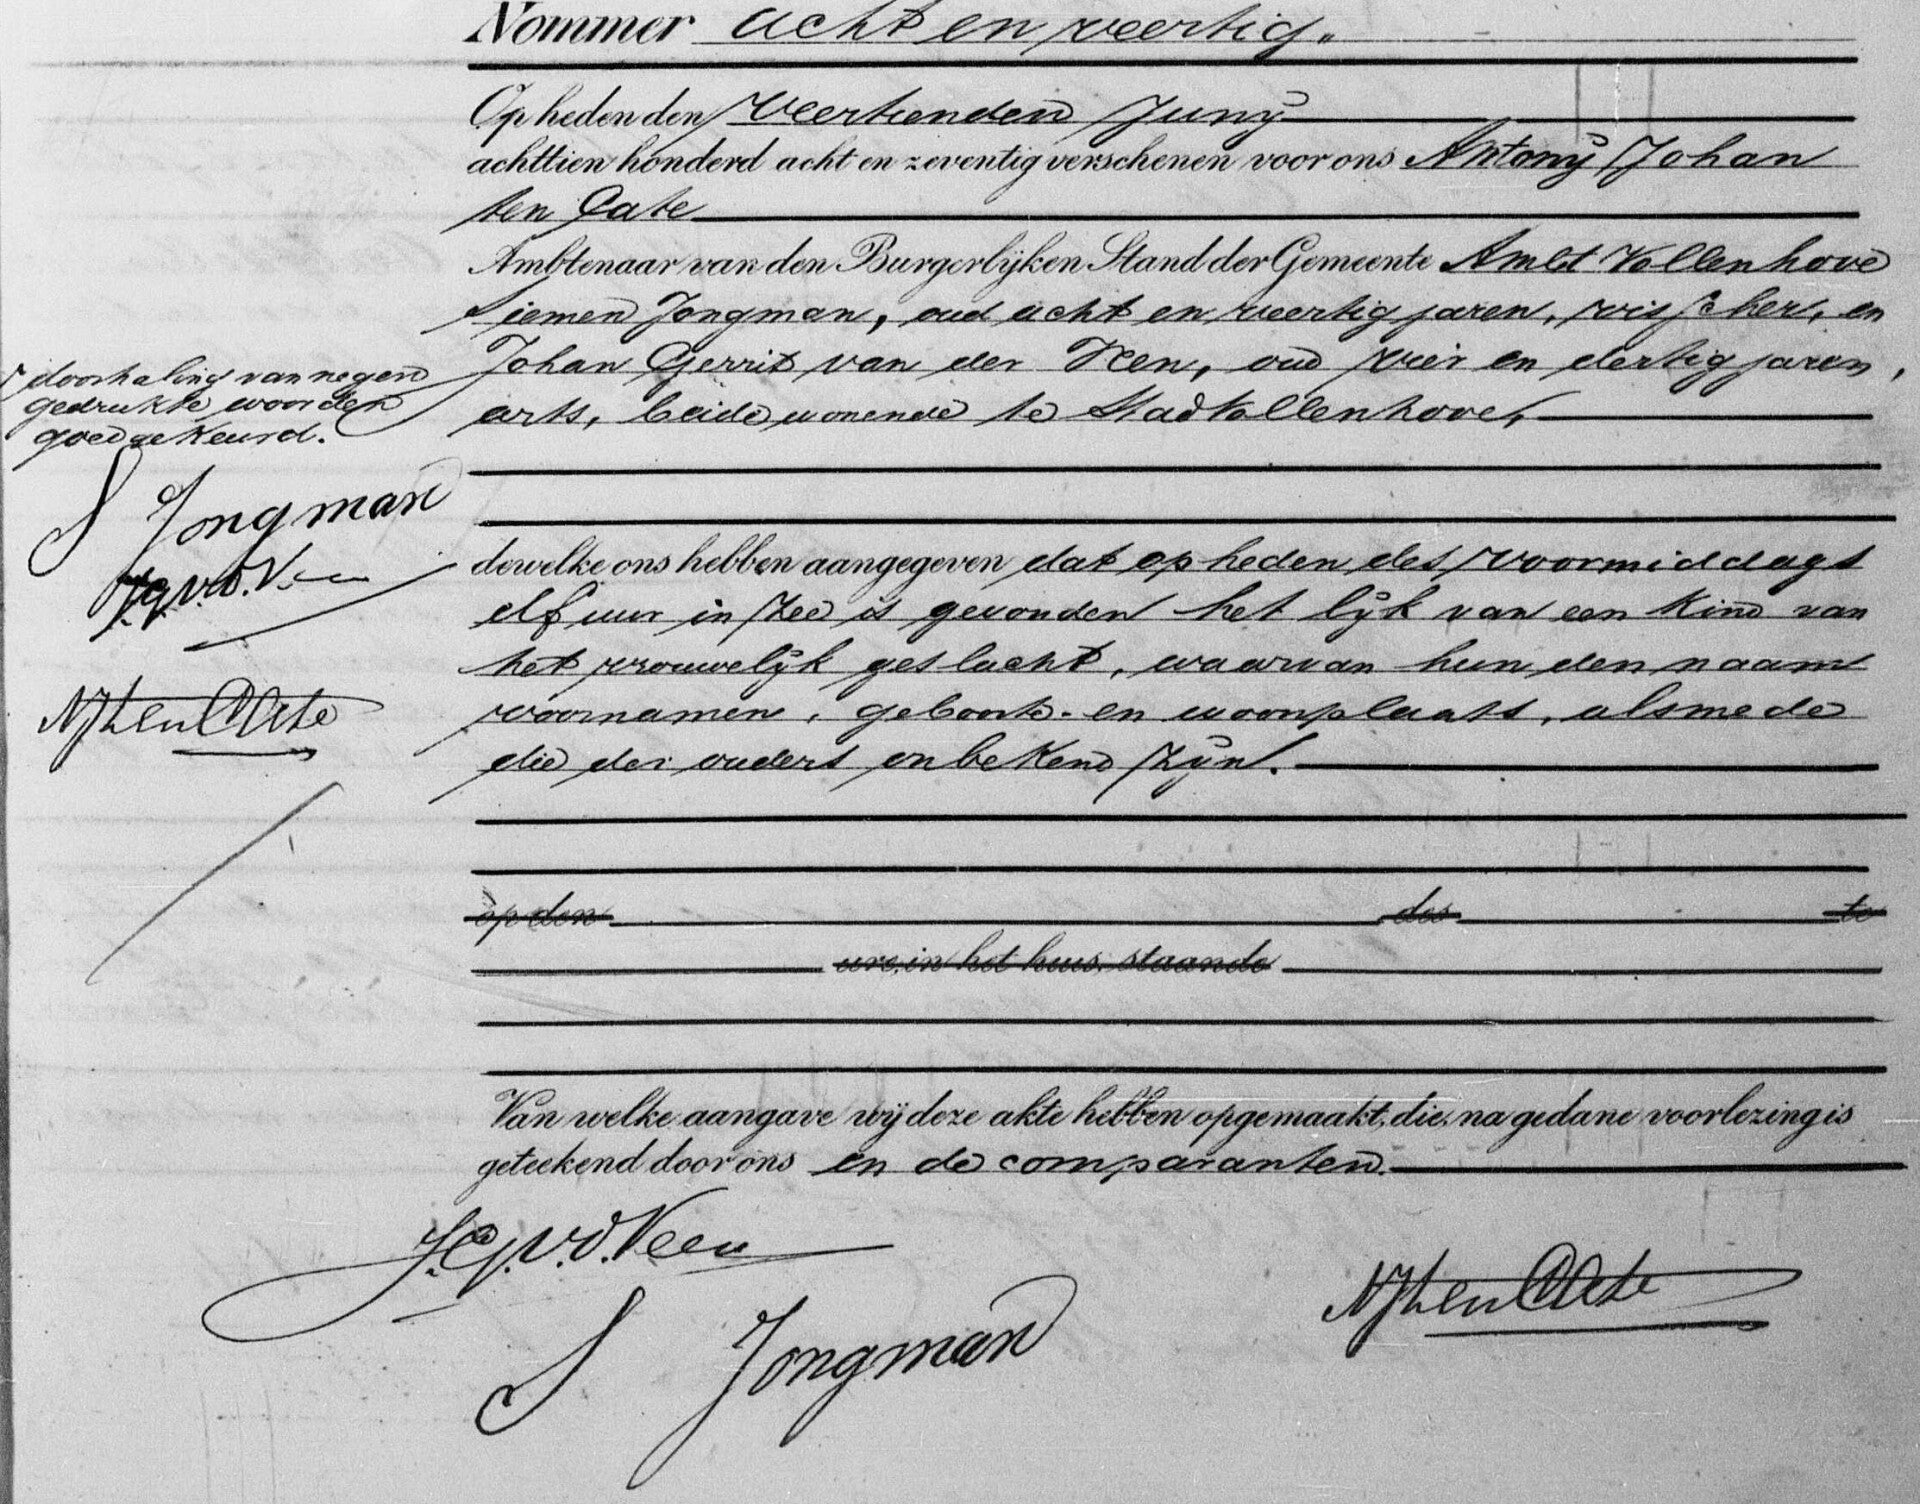 Nommer acht en veertig.
Op heden den Veertienden Junÿ
achttien honderd acht en zeventig verschenen voor ons Antonÿ Johan
ten Cate
Ambtenaar van den Burgerlijken Stand der Gemeente Ambt Vollenhove
Siemen Jongman, oud acht en veertig jaren, visscher, en
Johan Gerrit van der Veen, oud vier en dertig jaren,
arts, beide wonende te Stad Vollenhove,
doorhaling van negen
gedrukte woorden
goedgekeurd.
S Jongman
J.G.v.d.Veen
AJtenCate
dewelke ons hebben aangegeven dat op heden des voormiddags
elf uur in Zee is gevonden het lÿk van een Kind van
het vrouwelÿk geslacht, waarvan hun den naam
voornamen, geboorte- en woonplaats, alsmede
die der ouders onbekend zÿn.
op den des te
ure, in het huis, staande
Van welke aangave wij deze akte hebben opgemaakt, die, na gedane voorlezing is
geteekend door ons en de comparanten.
J.G.v.d.Veen
S Jongman
AJtenCate